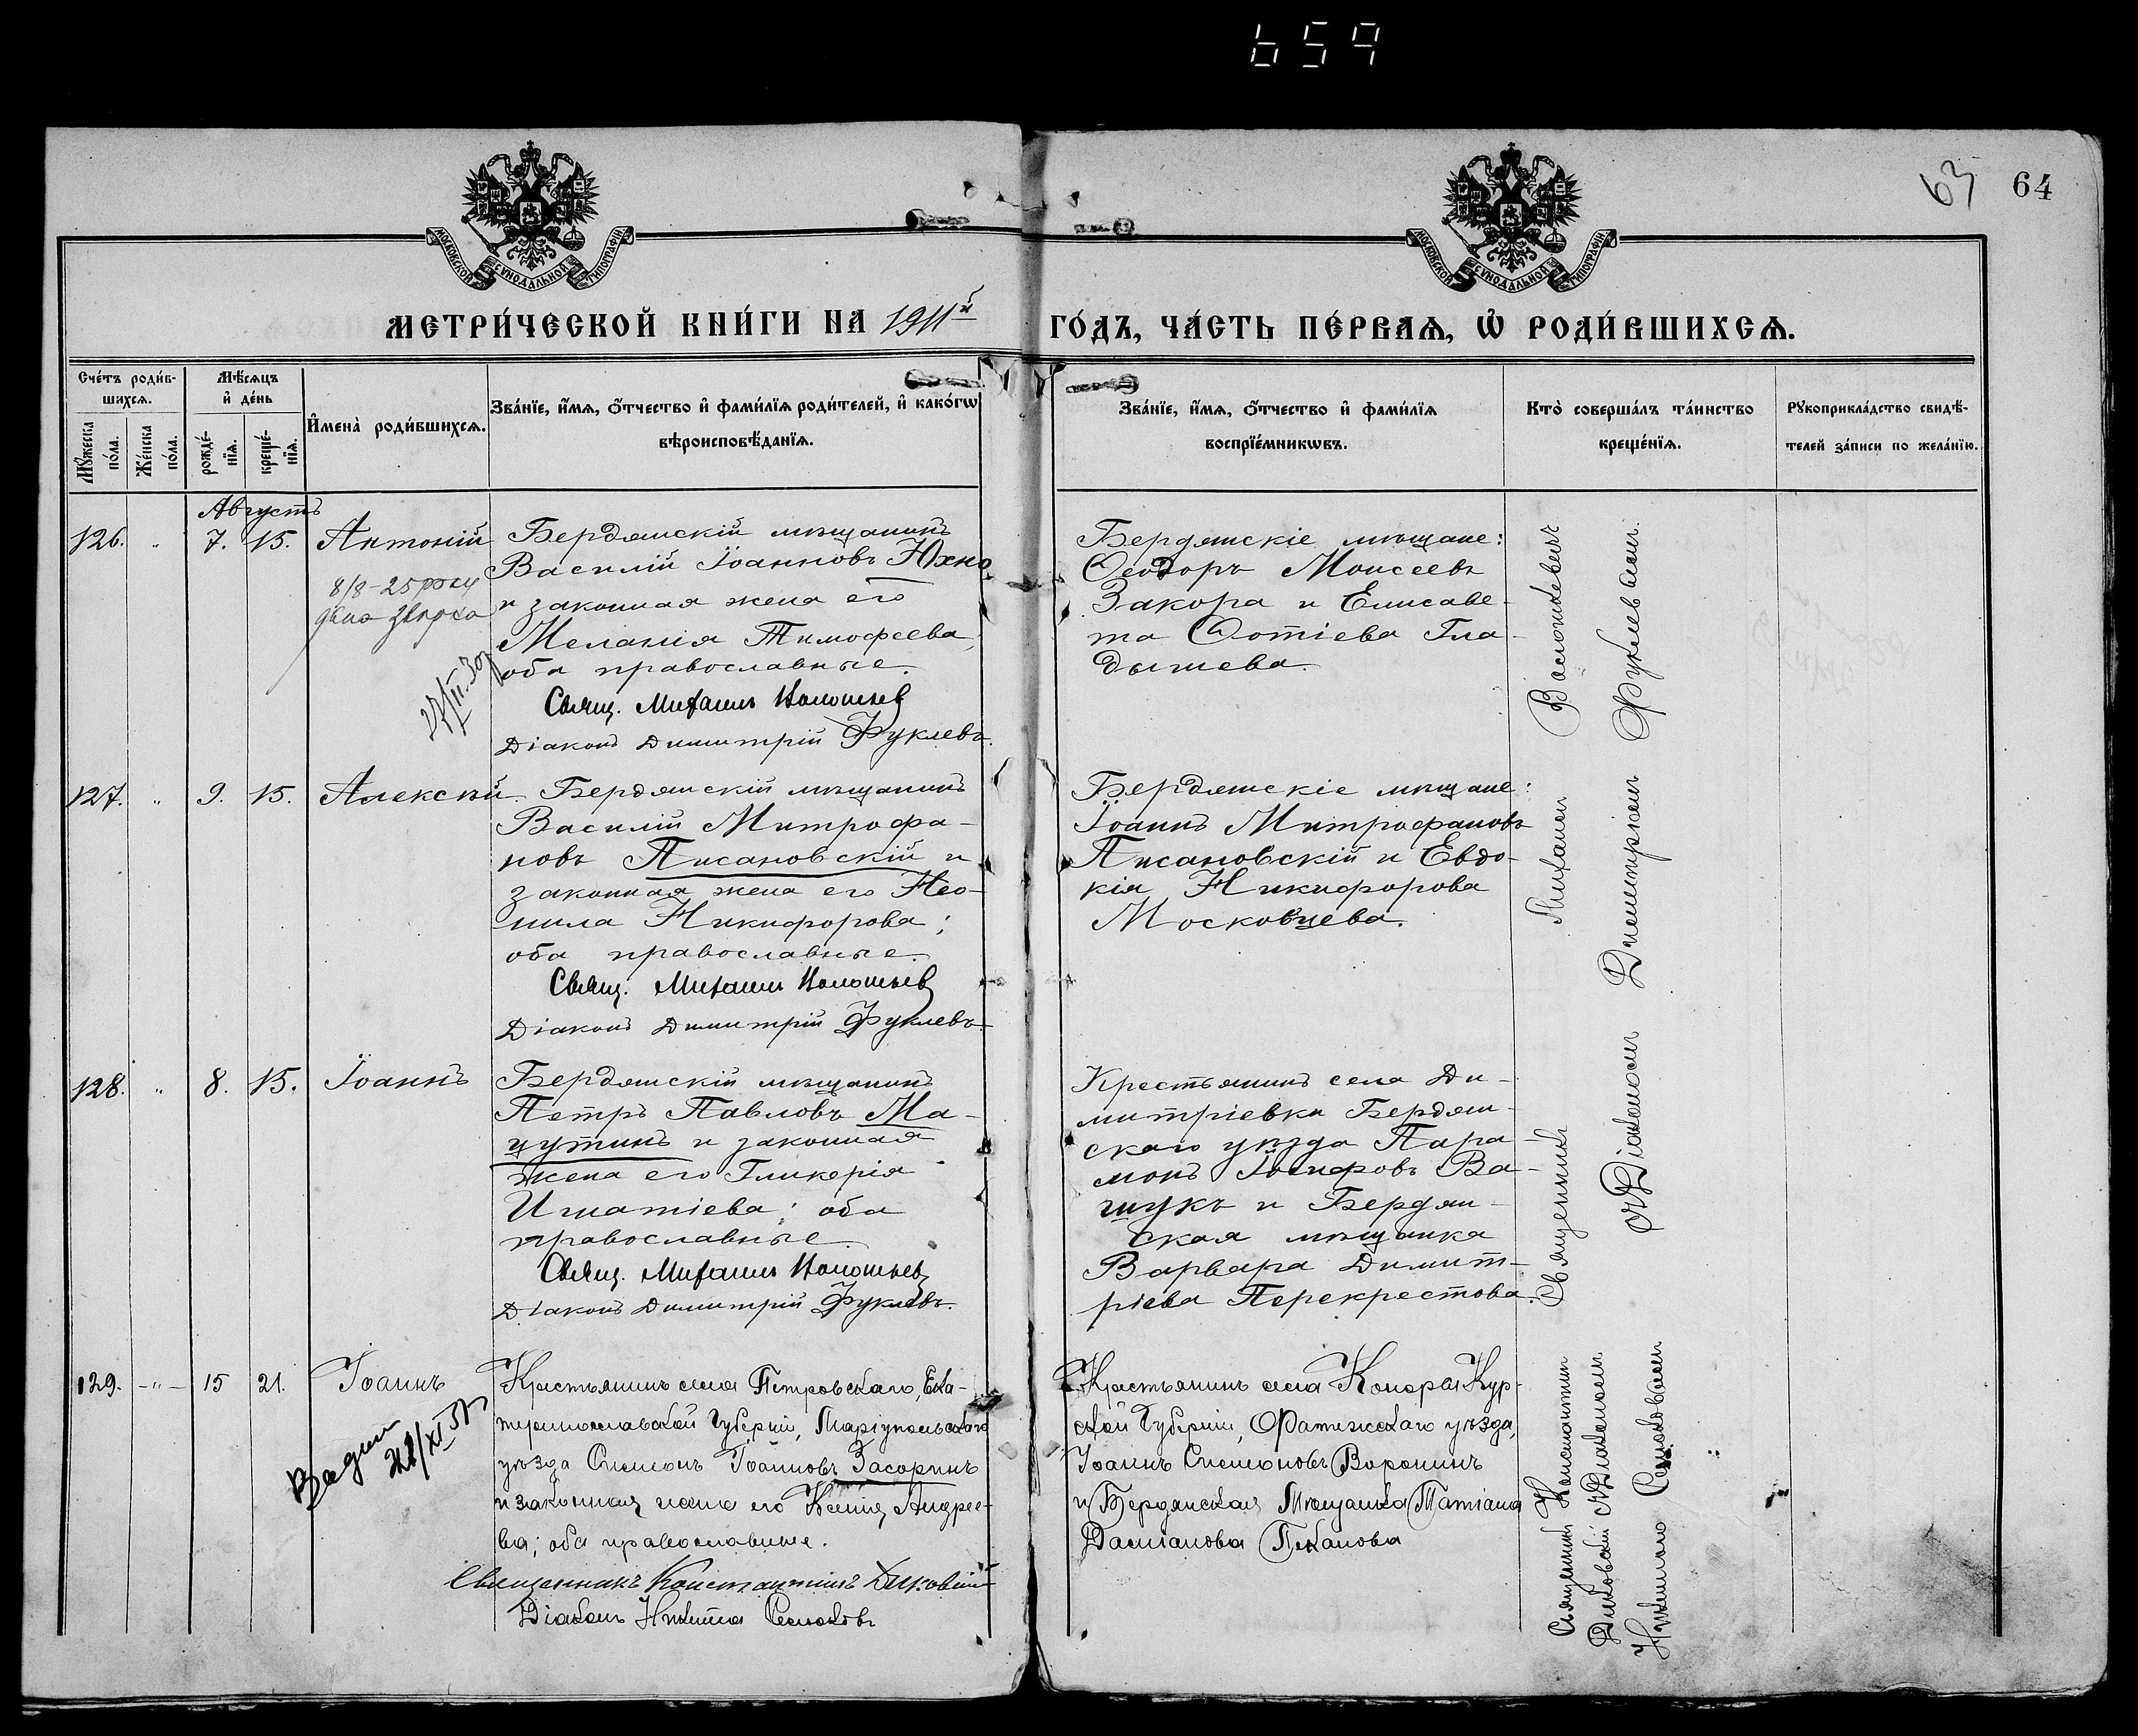 659
63 64
МОСКОВСКОЙ СѴНОДАЛЬНОЙ ТИПОГРАФІИ
МОСКОВСКОЙ СѴНОДАЛЬНОЙ ТИПОГРАФІИ
МЕТРИ́ЧЕСКОЙ КНИ́ГИ НА 1911й ГО́ДЪ, ЧА́СТЬ ПЕ́РВАѦ, Ѡ҆ РОДИ́ВШИХСѦ.
Сче́тъ роди́в-
шихсѧ.
Мѣ́сѧцъ
и҆ де́нь
Мꙋ́жеска
по́ла.
Же́нска
по́ла.
рожде́-
нїѧ.
креще́-
нїѧ.
И҆мена̀ роди́вшихсѧ.
Зва́нїе, и҆́мѧ, ѻ҆́тчество и҆ фами́лїѧ роди́телей, и҆ како́гѡ
вѣроисповѣ́данїѧ.
Зва́нїе, и҆́мѧ, ѻ҆́тчество и҆ фами́лїѧ
воспрїе́мникѡвъ.
Кто̀ соверша́лъ та́инство
креще́нїѧ.
Рꙋкоприкла́дство свидѣ́-
телей за́писи по жела́нїю.
Августъ
126. „ 7. 15. Антоній
8/8-25 року
Бердянскій мѣщанинъ
Василій Іоанновъ Юхно
и законная жена его
Меланія Тимофеева,
оба православные.
Свящ. Михаилъ
Діаконъ Димитрій Фуклевъ.
Бердянскіе мѣщане:
Ѳеодоръ Моисеевъ
Закора и Елисаве-
та Фотіева Гла-
дышева.
127. „ 9. 15. Алексѣй.
Бердянскій мѣщанинъ
Василій Митрофа-
новъ Писановскій и
законная жена его Нео-
нила Никифорова;
оба православные.
Свящ. Михаилъ
Діаконъ Димитрій Фуклевъ.
Бердянскіе мѣщане:
Іоаннъ Митрофановъ
Писановскій и Евдо-
кія Никифорова
Московцева.
128. „ 8. 15. Іоаннъ
Бердянскій мѣщанинъ
Петръ Павловъ Ма-
цутинъ и законная
жена его Гликерія
Игнатіева; оба
православные.
Свящ. Михаилъ
Діаконъ Димитрій Фуклевъ.
Крестьянинъ села Ди-
митріевки Бердян-
скаго уѣзда Пара-
монъ Іосифовъ Ва-
шукъ и Бердян-
ская мѣщанка
Варвара Димит-
ріева Перекрестова.
Священникъ Михаилъ
Діакономъ Димитріемъ Фуклевымъ.
129. -„- 15 21. Іоаннъ
Крестьянинъ села Петровскаго, Ека-
теринославской губерніи, Маріупольскаго
уѣзда Симеонъ Іоанновъ Засоринъ
и законная жена его Ксенія Андрее-
ва; оба православные.
Священникъ Константинъ
Діаконъ Никита
Крестьянинъ села Кур-
ской губерніи, Фатежскаго уѣзда,
Іоаннъ Симеоновъ Воронинъ
и Бердянская Мѣщанка Татіана
Даміанова
Священникъ Константинъ
съ Діакономъ
Никитою